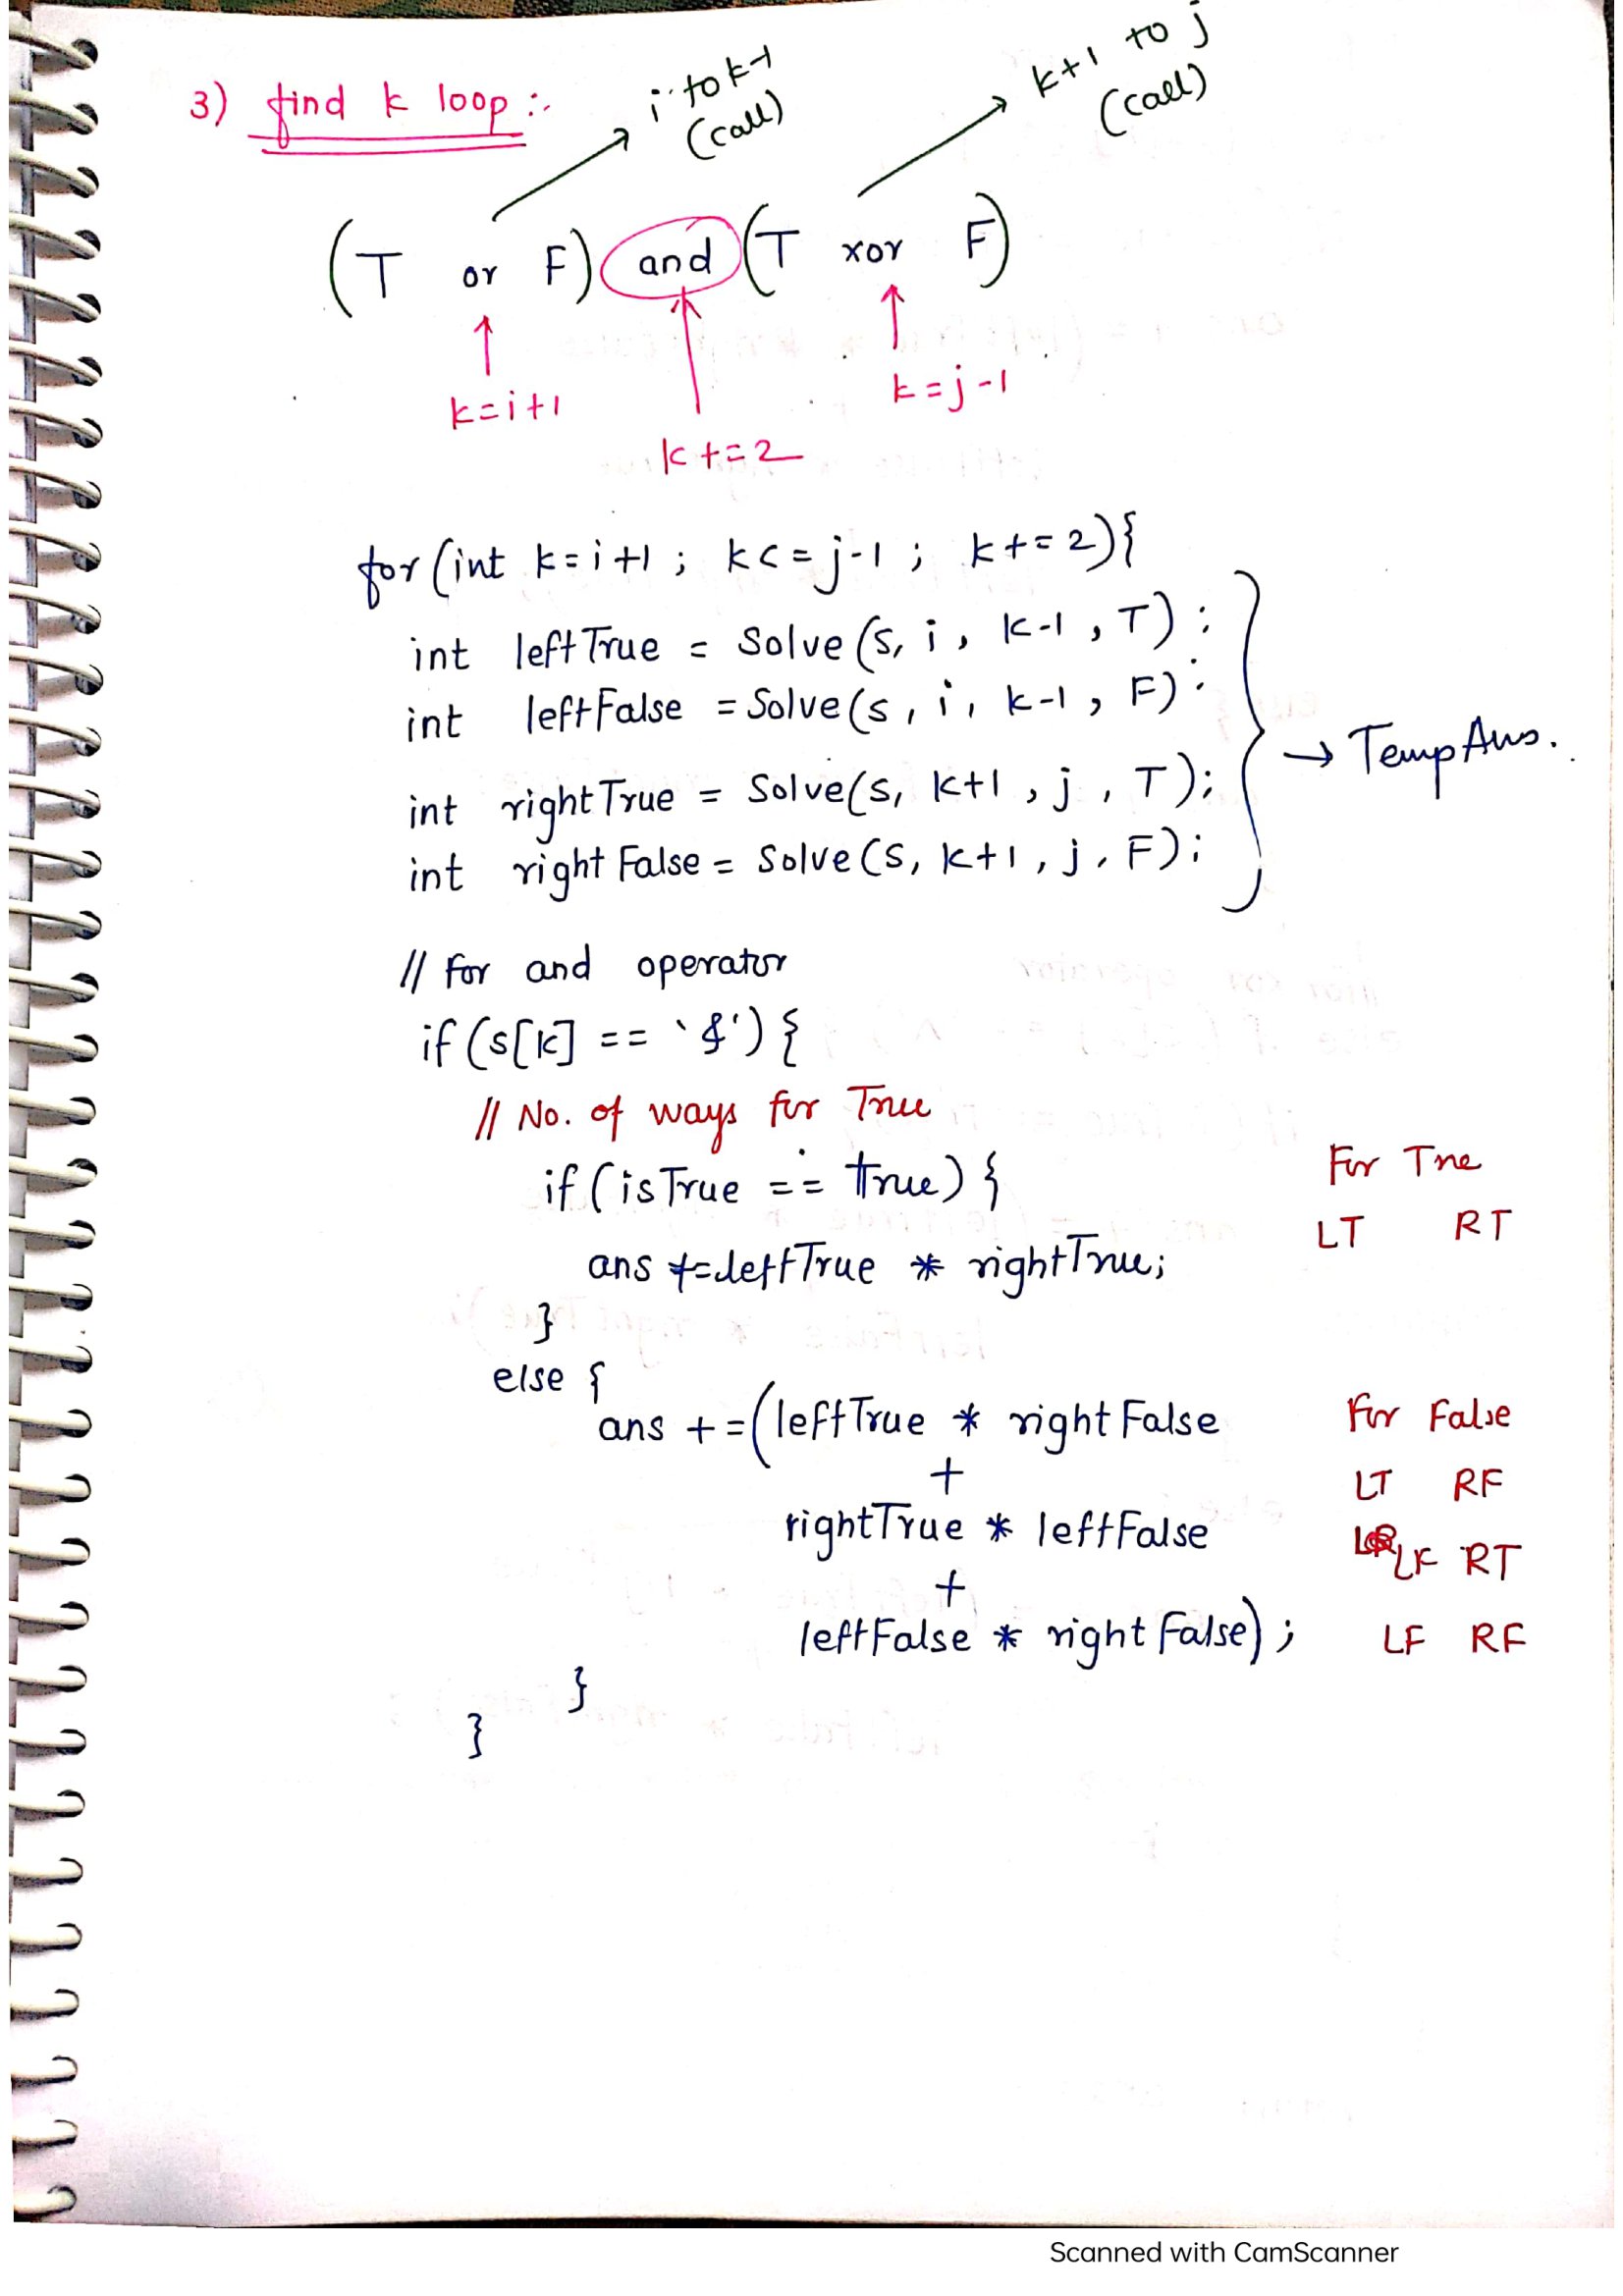 3) find k loop :-
i to k-1
(call)
k+1 to j
(call)
(T or F) and (T xor F)
k=i+1
k+=2
k=j-1
for(int k=i+1 ; k<=j-1 ; k+=2){
int leftTrue = Solve(s, i, k-1, T);
int leftFalse = Solve(s, i, k-1, F);
int rightTrue = Solve(s, k+1, j, T);
int rightFalse = Solve(s, k+1, j, F);
→ TempAns.
// for and operator
if(s[k] == '&'){
// No. of ways for True
if(isTrue == true){
For True
ans += leftTrue * rightTrue;
LT RT
}
else {
ans += (leftTrue * rightFalse
For False
+
LT RF
rightTrue * leftFalse
LF RT
+
leftFalse * rightFalse);
LF RF
}
}
Scanned with CamScanner